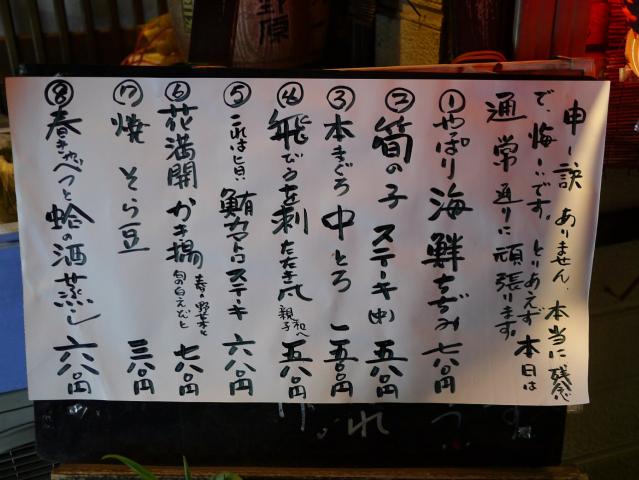 申し訳ありません、本当に残念
で、悔しいです。とりあえず本日は
通常通りに頑張ります。
①やっぱり海鮮ちぢみ 七八〇円
②筍の子ステーキ(中) 五八〇円
③本まぐろ中とろ 一五〇〇円
④飛びうを刺 たたき風 親子和へ 五八〇円
⑤これは旨い 鮪カマトロステーキ 六八〇円
⑥花満開かき揚 春の野菜と旬の白えびと 七八〇円
⑦焼そら豆 三八〇円
⑧春きゃべつと蛤の酒蒸し 六八〇円
野原